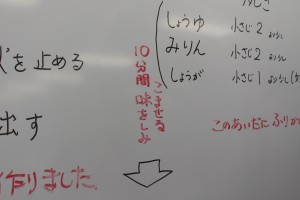 しょうゆ 小さじ2
みりん 小さじ2
しょうが 小さじ1
を止める
出す
作りました。
10分間味をしみ
こませる
このあいだにふりか